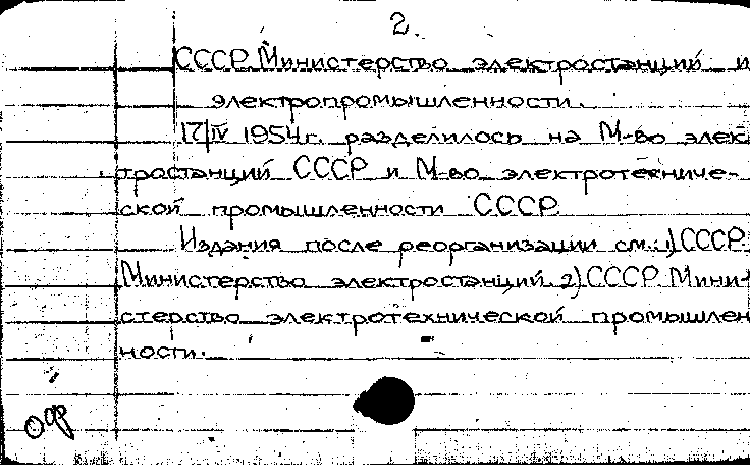 2.
СССР. Министерство электростанций и
электропромышленности.
17/IV 1954 г. разделилось на М-во элек
тростанций СССР и М-во электротехниче-
ской промышленности СССР
Издания после реорганизации см.: 1) СССР.
Министерство электростанций. 2) СССР. Мини-
стерство электротехнической промышлен
ности.
Офр